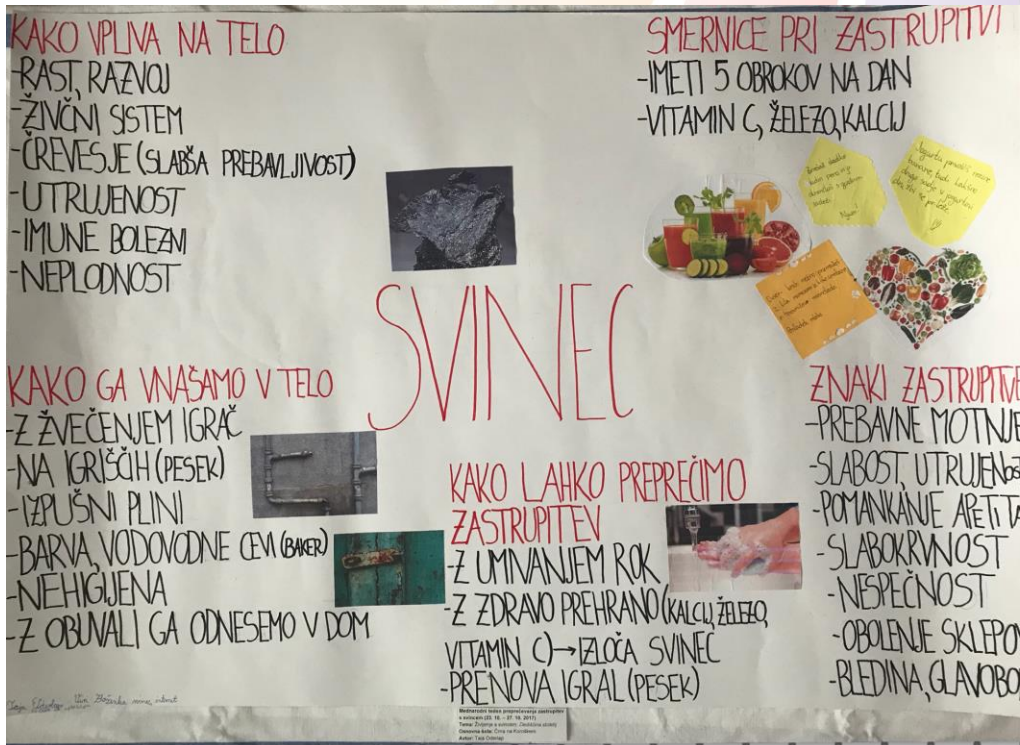 KAKO VPLIVA NA TELO
-RAST, RAZVOJ
-ŽIVČNI SISTEM
-ČREVESJE (SLABŠA PREBAVLJIVOST)
-UTRUJENOST
-IMUNE BOLEZNI
-NEPLODNOST
SMERNICE PRI ZASTRUPITVI
-IMETI 5 OBROKOV NA DAN
-VITAMIN C, ŽELEZO, KALCIJ
SVINEC
KAKO GA VNAŠAMO V TELO
-Z ŽVEČENJEM IGRAČ
-NA IGRIŠČIH (PESEK)
-IZPUŠNI PLINI
-BARVA, VODOVODNE CEVI (BAKER)
-NEHIGIJENA
-Z OBUVALI GA ODNESEMO V DOM
KAKO LAHKO PREPREČIMO
ZASTRUPITEV
-Z UMIVANJEM ROK
-Z ZDRAVO PREHRANO (KALCIJ, ŽELEZO,
VITAMIN C)→IZLOČA SVINEC
-PRENOVA IGRAL (PESEK)
ZNAKI ZASTRUPITVE
-PREBAVNE MOTNJE
-SLABOST, UTRUJENOST
-POMANKANJE APETITA
-SLABOKRVNOST
-NESPEČNOST
-OBOLENJE SKLEPOV
-BLEDINA, GLAVOBO
Mednarodni teden preprečevanja zastrupitev
s svincem (22. 10. – 27. 10. 2017)
Osnovna šola: Črna na Koroškem